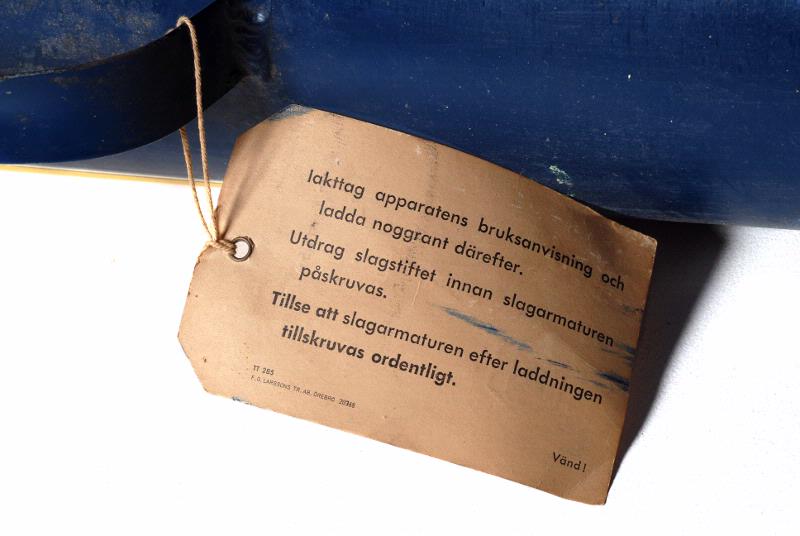 Iakttag apparatens bruksanvisning och
ladda noggrant därefter.
Utdrag slagstiftet innan slagarmaturen
påskruvas.
Tillse att slagarmaturen efter laddningen
tillskruvas ordentligt.
TT 285
F. O. LARSSONS TR. AB, ÖREBRO
Vänd!